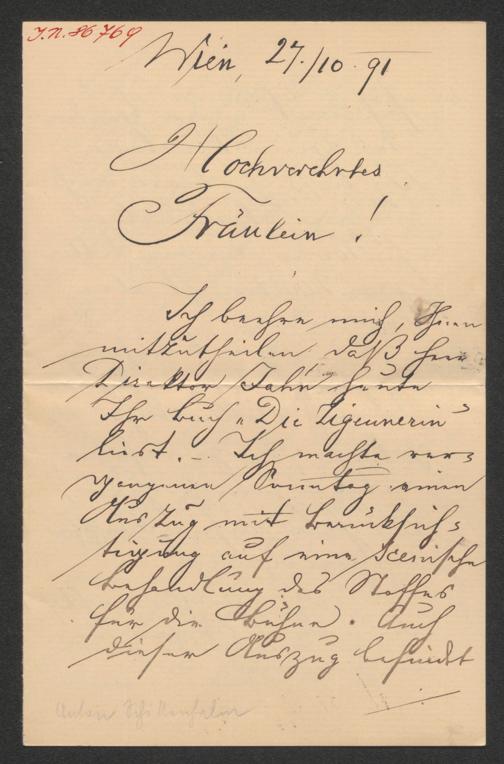 J.N. 86769
Wien, 27./10. 91
Hochverehrtes
Fräulein!
Ich beehre mich, Ihnen
mitzutheilen daß Herr
Direktor Jahn heute
Ihr Buch „Die Zigeunerin“
liest. – Ich machte ver=
gangenen Sonntag einen
Auszug mit Berücksich=
tigung auf eine scenische
Behandlung des Stoffes
für die Bühne. Auch
dieser Auszug befindet
Anton